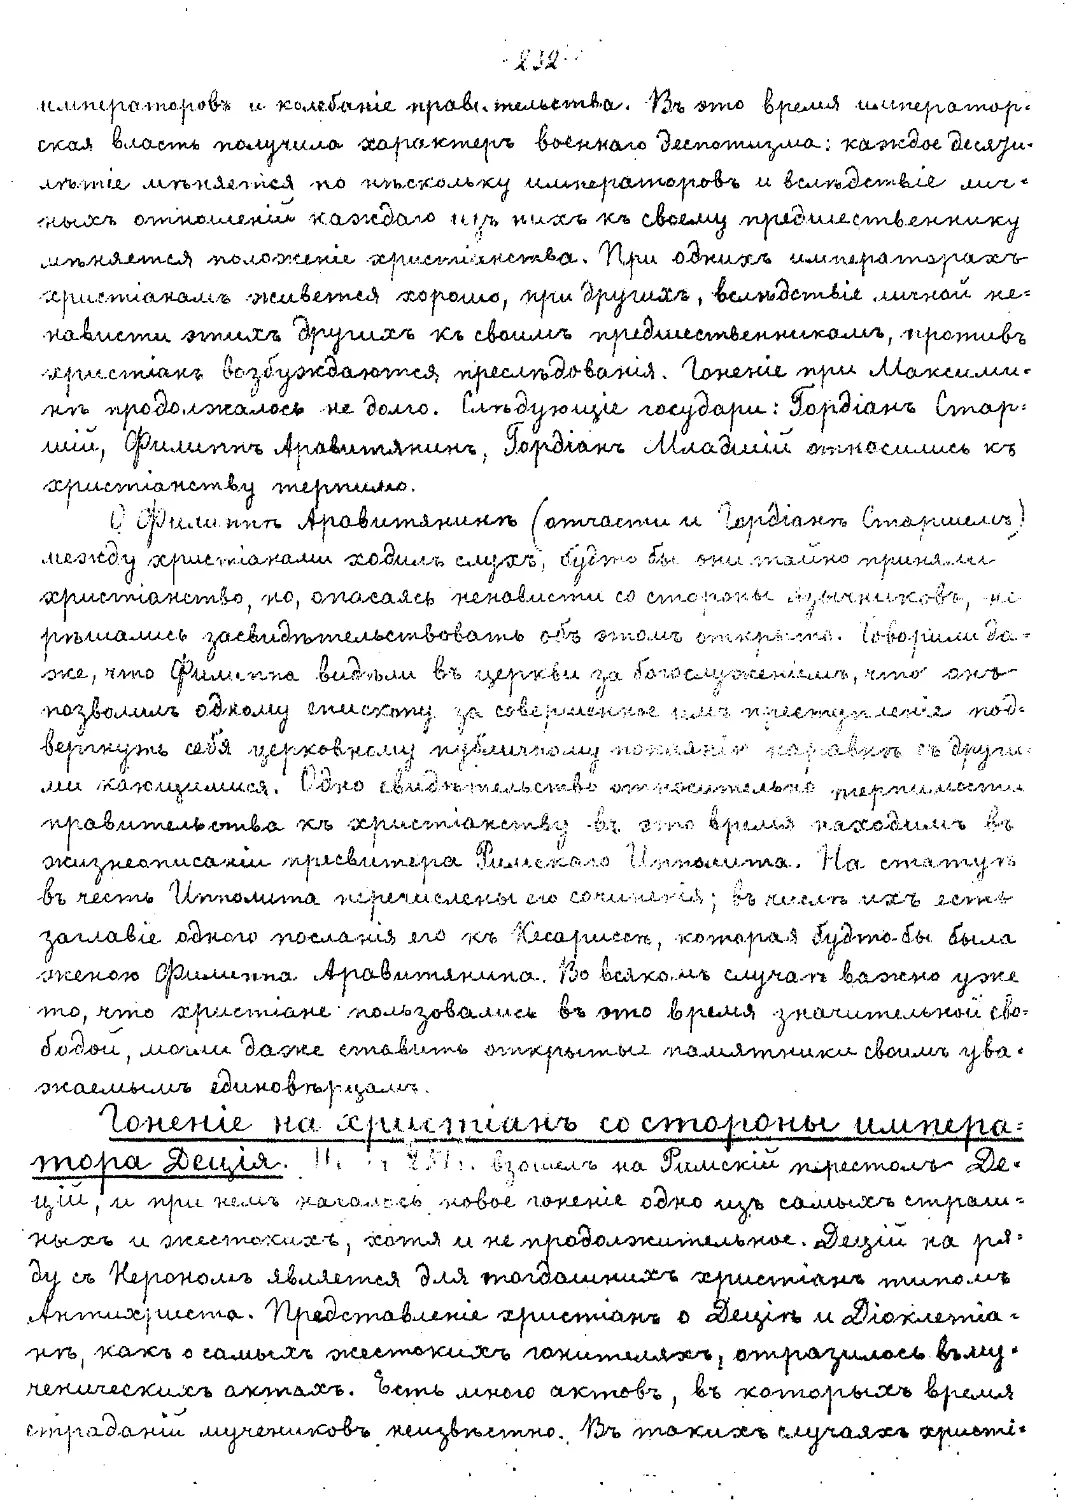 232
императоровъ и колебаніе правительства. Въ это время император-
ская власть получила характеръ военнаго деспотизма: каждое десяти-
лѣтіе мѣняется по нѣскольку императоровъ и вслѣдствіе лич-
ныхъ отношеній каждаго изъ нихъ къ своему предшественнику
мѣняется положеніе христіанства. При однихъ императорахъ
христіанамъ живется хорошо, при другихъ, вслѣдствіе личной не-
нависти этихъ другихъ къ своимъ предшественникамъ, противъ
христіанъ возбуждаются преслѣдованія. Гоненіе при Максими-
нѣ продолжалось не долго. Слѣдующіе государи: Гордіанъ Стар-
шій, Филиппъ Аравитянинъ, Гордіанъ Младшій относились къ
христіанству терпимо.
О Филиппѣ Аравитянинѣ (отчасти и Гордіанѣ Старшемъ)
между христіанами ходилъ слухъ, будто бы они тайно приняли
христіанство, но, опасаясь ненависти со стороны язычниковъ, не
рѣшались засвидѣтельствовать объ этомъ открыто. Говорили да-
же, что Филиппа видѣли въ церкви за богослуженіемъ, что онъ
позволилъ одному епископу за совершенное имъ преступленіе под-
вергнуть себя церковному публичному покаянію наравнѣ съ други-
ми кающимися. Одно свидѣтельство относительно терпимости
правительства къ христіанству въ это время находимъ въ
жизнеописаніи пресвитера Римскаго Ипполита. На статуѣ
въ честь Ипполита перечислены его сочиненія; въ числѣ ихъ есть
заглавіе одного посланія его къ Кесариссѣ, которая будто-бы была
женою Филиппа Аравитянина. Во всякомъ случаѣ важно уже
то, что христіане пользовались въ это время значительной сво-
бодой, могли даже ставить открытые памятники своимъ ува-
жаемымъ единовѣрцамъ.
Гоненіе на христіанъ со стороны импера-
тора Деція. взошелъ на Римскій престолъ Де-
цій, и при немъ началось новое гоненіе одно изъ самыхъ страш-
ныхъ и жестокихъ, хотя и не продолжительное. Децій на ря-
ду съ Нерономъ является для тогдашнихъ христіанъ типомъ
Антихриста. Представленіе христіанъ о Деціѣ и Діоклетіа-
нѣ, какъ о самыхъ жестокихъ гонителяхъ, отразилось въ му-
ченическихъ актахъ. Есть много актовъ, въ которыхъ время
страданій мучениковъ неизвѣстно. Въ такихъ случаяхъ христі-